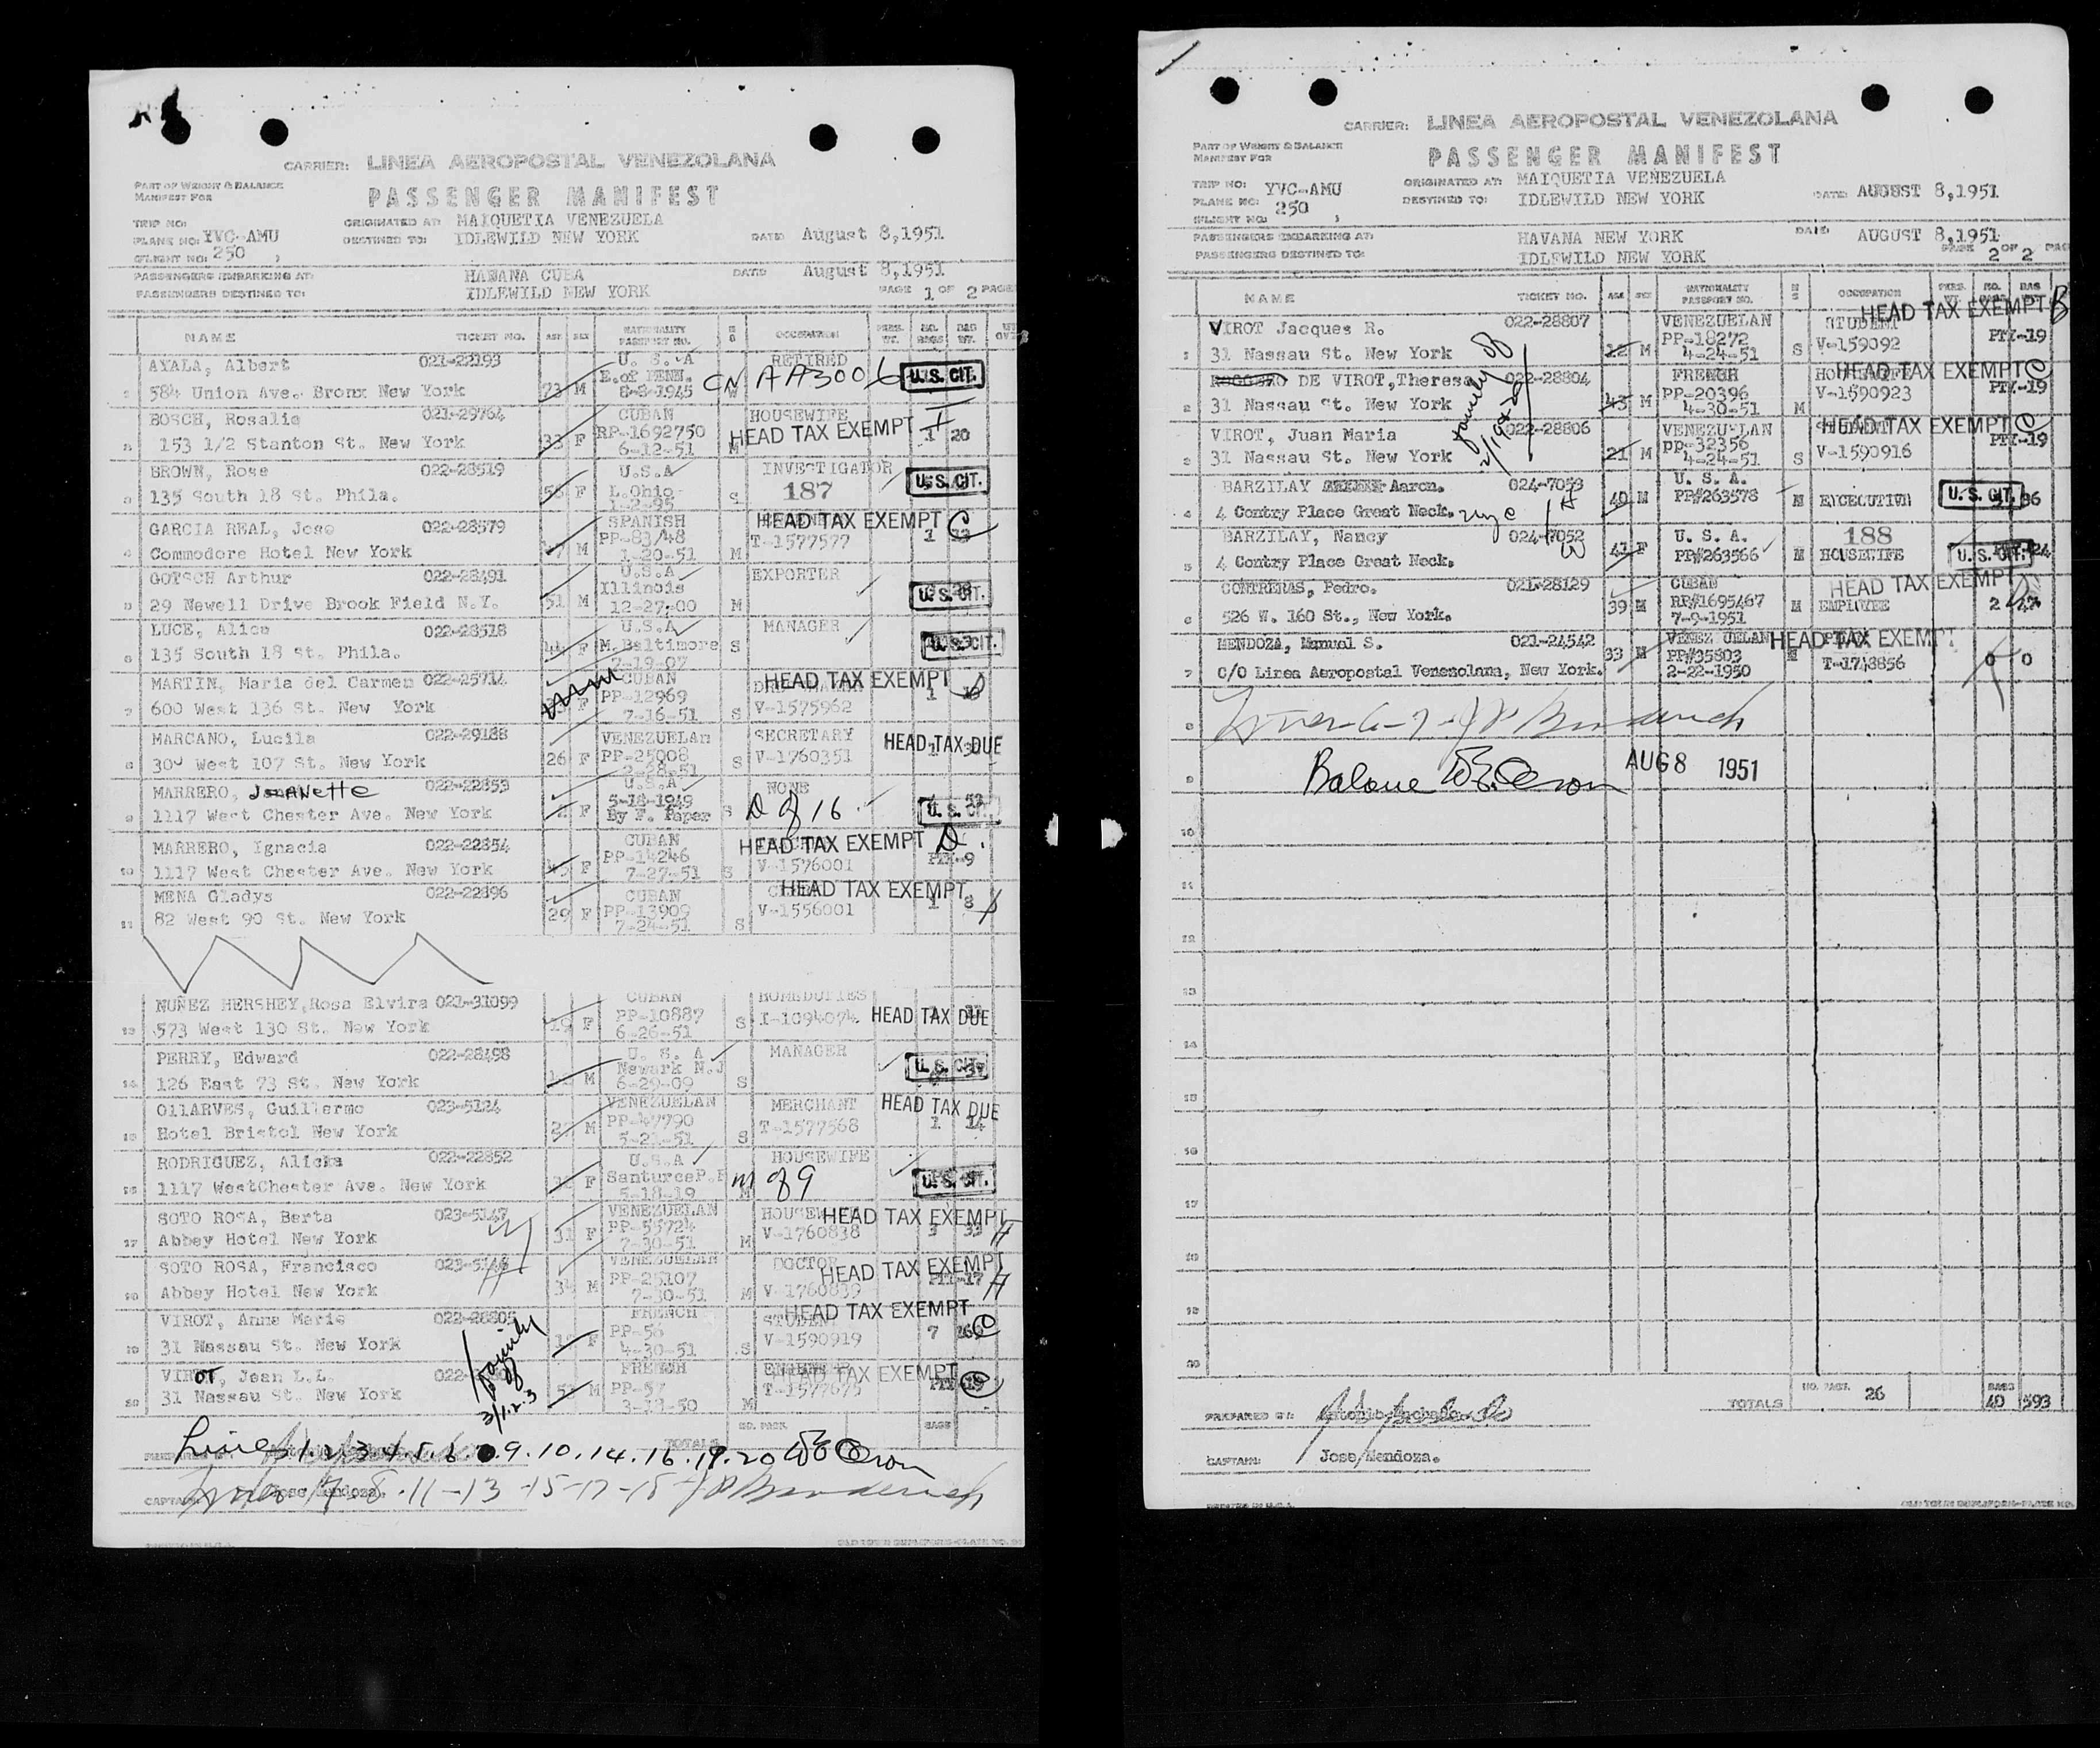 CARRIER: LINEA AEROPOSTAL VENEZOLANA
PART OF WEIGHT & BALANCE
MANIFEST FOR
PASSENGER MANIFEST
TRIP NO:
PLANE NO: YVC-AMU
(FLIGHT NO: 250 )
ORIGINATED AT: MAIQUETIA VENEZUELA
DESTINED TO: IDLEWILD NEW YORK
DATE August 8,1951
PASSENGERS EMBARKING AT: HABANA CUBA DATE August 8,1951
PASSENGERS DESTINED TO: IDLEWILD NEW YORK PAGE 1 OF 2 PAGE
NAME TICKET NO. AGE SEX NATIONALITY PASSPORT NO. M S OCCUPATION PERS. WT. NO. BAGS BAG WT.
AYALA, Albert 021-22193 U. S. A RETIRED
584 Union Ave. Bronx New York 73 M 8-8-1945 CN AA3006 U.S. CIT.
BOSCH, Rosalia 021-29764 CUBAN HOUSEWIFE
153 1/2 Stanton St. New York 33 F RP-1692750 HEAD TAX EXEMPT 1 20
6-12-51 M
BROWN, Rose 022-28519 U.S.A INVESTIGATOR
135 South 18 St. Phila. 56 F L.Ohio S 187 U.S. CIT.
1-2-95
GARCIA REAL, Jose 022-28579 SPANISH HEAD TAX EXEMPT C
Commodore Hotel New York 47 M PP-83/48 T-1577577 1
1-20-51 M
GOTSCH Arthur 022-28491 U.S.A EXPORTER
29 Newell Drive Brook Field N.Y. 51 M Illinois U.S. CIT.
12-27-00 M
LUCE, Alice 022-28518 U.S.A MANAGER
135 South 18 St. Phila. 44 F M.Baltimore S U.S. CIT.
7-19-07
MARTIN, Maria del Carmen 022-25714 CUBAN HEAD TAX EXEMPT
600 West 136 St. New York F PP-12969 V-1575962 1
7-16-51 S
MARCANO, Lucila 022-29188 VENEZUELAn SECRETARY HEAD TAX DUE
300 West 107 St. New York 26 F PP-25008 S V-1760351
2-28-51
MARRERO, Jeanette 022-22853 U.S.A NONE
1117 West Chester Ave. New York 2 F 5-18-1949 D of 16 U.S. CIT.
By F. Paper S
MARRERO, Ignacia 022-22854 CUBAN HEAD TAX EXEMPT D.
1117 West Chester Ave. New York 45 F PP-14246 V-1576001 PTY-9
7-27-51 S
MENA Gladys 022-22896 CUBAN HEAD TAX EXEMPT
82 West 90 St. New York 29 F PP-13909 V-1556001 1 8
7-24-51 S
NUÑEZ HERSHEY,Rosa Elvira 021-31099 CUBAN HOMEDUTIES
573 West 130 St. New York 19 F PP-10887 S I-1094074 HEAD TAX DUE
6-26-51
PERRY, Edward 022-28498 U. S. A MANAGER
126 East 73 St. New York M Newark N.J U.S. CIT.
6-29-09 S
OllARVES, Guillermo 023-5124 VENEZUELAN MERCHANT HEAD TAX DUE
Hotel Bristol New York M PP-47790 T-1577568 1 14
5-21-51 S
RODRIGUEZ, Alicia 022-22852 U.S.A HOUSEWIFE
1117 WestChester Ave. New York F SanturceP.R m of 9 U.S. CIT.
5-18-19 M
SOTO ROSA, Berta 023-5147 VENEZUELAN HEAD TAX EXEMPT
Abbey Hotel New York 31 F PP-55724 V-1760838 3 33 H
7-30-51 M
SOTO ROSA, Francisco 023-5146 VENEZUELAN DOCTOR HEAD TAX EXEMPT
Abbey Hotel New York 34 M PP-25107 V-1760839 PTY-17 H
7-30-51 M
VIROT, Anna Marie 022-28805 FRENCH STUDENT HEAD TAX EXEMPT
31 Nassau St. New York F PP-56 V-1590919 7 C
4-30-51 S
VIROT, Jean L.L. FRENCH HEAD TAX EXEMPT
31 Nassau St. New York 51 M PP-57 T-1577675 C
3-13-50 M
family of 3/1.2.3
TOTALS NO. PASS. BAGS
Lines 1.2.3.4.5.6 9.10.14.16.19.20
CAPTAIN: Jose Mendoza. 7-8-11-13-15-17-18
CARRIER: LINEA AEROPOSTAL VENEZOLANA
PART OF WEIGHT & BALANCE
MANIFEST FOR
PASSENGER MANIFEST
TRIP NO: YVC-AMU
PLANE NO: 250
(FLIGHT NO: )
ORIGINATED AT: MAIQUETIA VENEZUELA
DESTINED TO: IDLEWILD NEW YORK
DATE AUGUST 8,1951
PASSENGERS EMBARKING AT: HAVANA NEW YORK DATE AUGUST 8,1951
PASSENGERS DESTINED TO: IDLEWILD NEW YORK PAGE 2 OF 2 PAG
NAME TICKET NO. AGE SEX NATIONALITY PASSPORT NO. M S OCCUPATION PERS. WT. NO. BAG
VIROT Jacques R. 022-28807 VENEZUELAN STUDENT HEAD TAX EXEMPT B
31 Nassau St. New York 12 M PP-18272 V-159092 PTY-19
4-24-51 S
DE VIROT,Theresa 022-28804 FRENCH HEAD TAX EXEMPT C
31 Nassau St. New York 43 M PP-20396 V-1590923 PTY-19
4-30-51 M
VIROT, Juan Maria 022-28806 VENEZUELAN HEAD TAX EXEMPT C
31 Nassau St. New York 21 M PP-32356 V-1590916 PTY-19
4-24-51 S
family of
BARZILAY Aaron. 024-7053 U. S. A.
4 Contry Place Great Neck. 40 M PP#263578 M EXCECUTIVE U.S. CIT. 36
BARZILAY, Nancy 024-7052 U. S. A. 188
4 Contry Place Great Neck. 41 F PP#263566 M HOUSEWIFE U.S. CIT. 24
CONTRERAS, Pedro. 021-28129 CUBAN HEAD TAX EXEMPT
526 W. 160 St., New York. 39 M RP#1695467 M EMPLOYEE 2
7-9-1951
MENDOZA, Manuel S. 021-24542 VENEZUELAN HEAD TAX EXEMPT
C/O Linea Aeropostal Venezolana, New York. 33 M PP#35803 T-1748856 0 0
2-22-1950
Lines-6-7-
Balance AUG 8 1951
TOTALS NO. PASS. 26 BAGS 40 593
PREPARED BY:
CAPTAIN: Jose Mendoza.
PRINTED IN U.S.A.